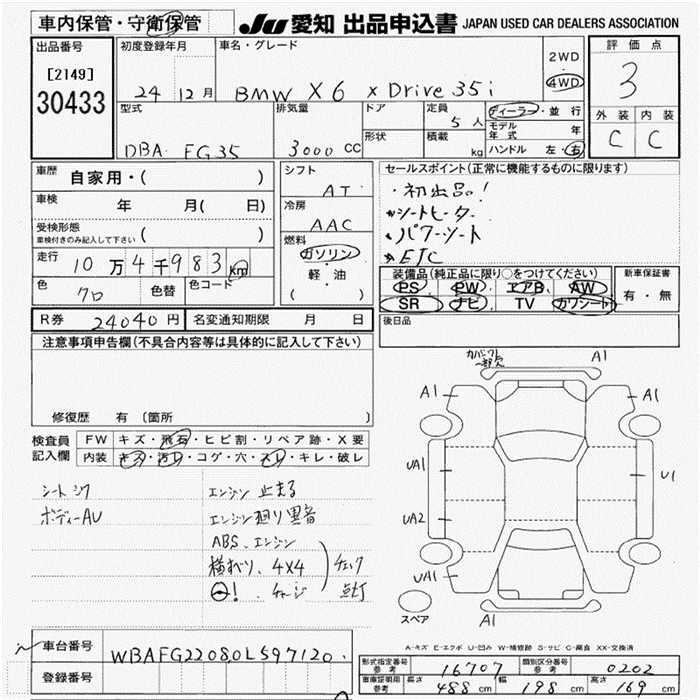 車内保管・守衛保管
JU 愛知 出品申込書 JAPAN USED CAR DEALERS ASSOCIATION
出品番号
[2149]
30433
初度登録年月
24 12月
車名・グレード
BMW X6 xDrive35i
2WD
4WD
評価点
3
外装 内装
C C
型式
DBA FG35
排気量
3000 CC
ドア
形状
定員
5人
積載
kg
ディーラー・並行
モデル年式 年
ハンドル 左・右
車歴
自家用・( )
車検
年 月( 日)
受検形態
車検付きのみ記入して下さい ( )
走行
10万4千983km
色
クロ
色替
色コード
シフト
AT
冷房
AAC
燃料
ガソリン
軽・油
( )
セールスポイント(正常に機能するものに限ります)
・初出品!
シートヒーター
パワーシート
ETC
装備品(純正品に限り○をつけてください)
PS PW エアB AW
SR ナビ TV カワシート
新車保証書
有・無
R券 24040円 名変通知期限 月 日
後日品
注意事項申告欄(不具合内容等は具体的に記入して下さい)
修復歴 有 [箇所
検査員記入欄
FW キズ・飛石・ヒビ割・リペア跡・X要
内装 キズ・汚レ・コゲ・穴・スレ・キレ・破レ
シートシワ
ボディーAU
エンジン止まる
エンジン廻り異音
ABS、エンジン
横すべり、4X4
! チャージ
チェック
点灯
A1
A1
A1
UA1
U1
UA2
UA1
A1
スペア
A-キズ E-エクボ U-凹み W-補修跡 S-サビ C-腐食 XX-交換済
車台番号
WBAFG22080L597120
登録番号
型式指定番号 参考 16707 類別区分番号 参考 0202
車庫証明用 参考 長さ 488 cm 幅 198 cm 高さ 169 cm